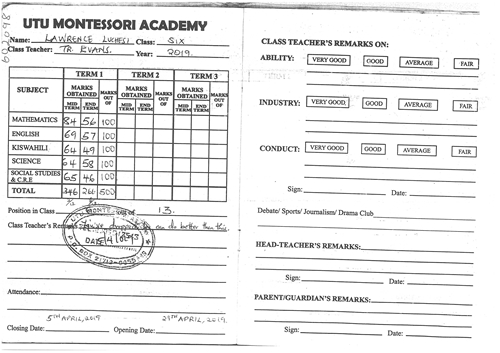 UTU MONTESSORI ACADEMY
Name: LAWRENCE LUCHESI Class: SIX
Class Teacher: TR. EVANS. Year: 2019.
TERM 1 TERM 2 TERM 3
SUBJECT MARKS OBTAINED MARKS OUT OF MARKS OBTAINED MARKS OUT OF MARKS OBTAINED MARKS OUT OF
MID TERM END TERM MID TERM END TERM MID TERM END TERM
MATHEMATICS 84 56 100
ENGLISH 69 57 100
KISWAHILI 64 49 100
SCIENCE 64 58 100
SOCIAL STUDIES & C.R.E 65 46 100
TOTAL 346 266 500
Position in Class out of 13.
Class Teacher's Remarks can do better than this.
DATE
Attendance:
5TH APRIL, 2019 29TH APRIL, 2019.
Closing Date: Opening Date:
CLASS TEACHER'S REMARKS ON:
ABILITY: VERY GOOD GOOD AVERAGE FAIR
INDUSTRY: VERY GOOD GOOD AVERAGE FAIR
CONDUCT: VERY GOOD GOOD AVERAGE FAIR
Sign: Date:
Debate/ Sports/ Journalism/ Drama Club
HEAD-TEACHER'S REMARKS:
Sign: Date:
PARENT/GUARDIAN'S REMARKS:
Sign: Date: